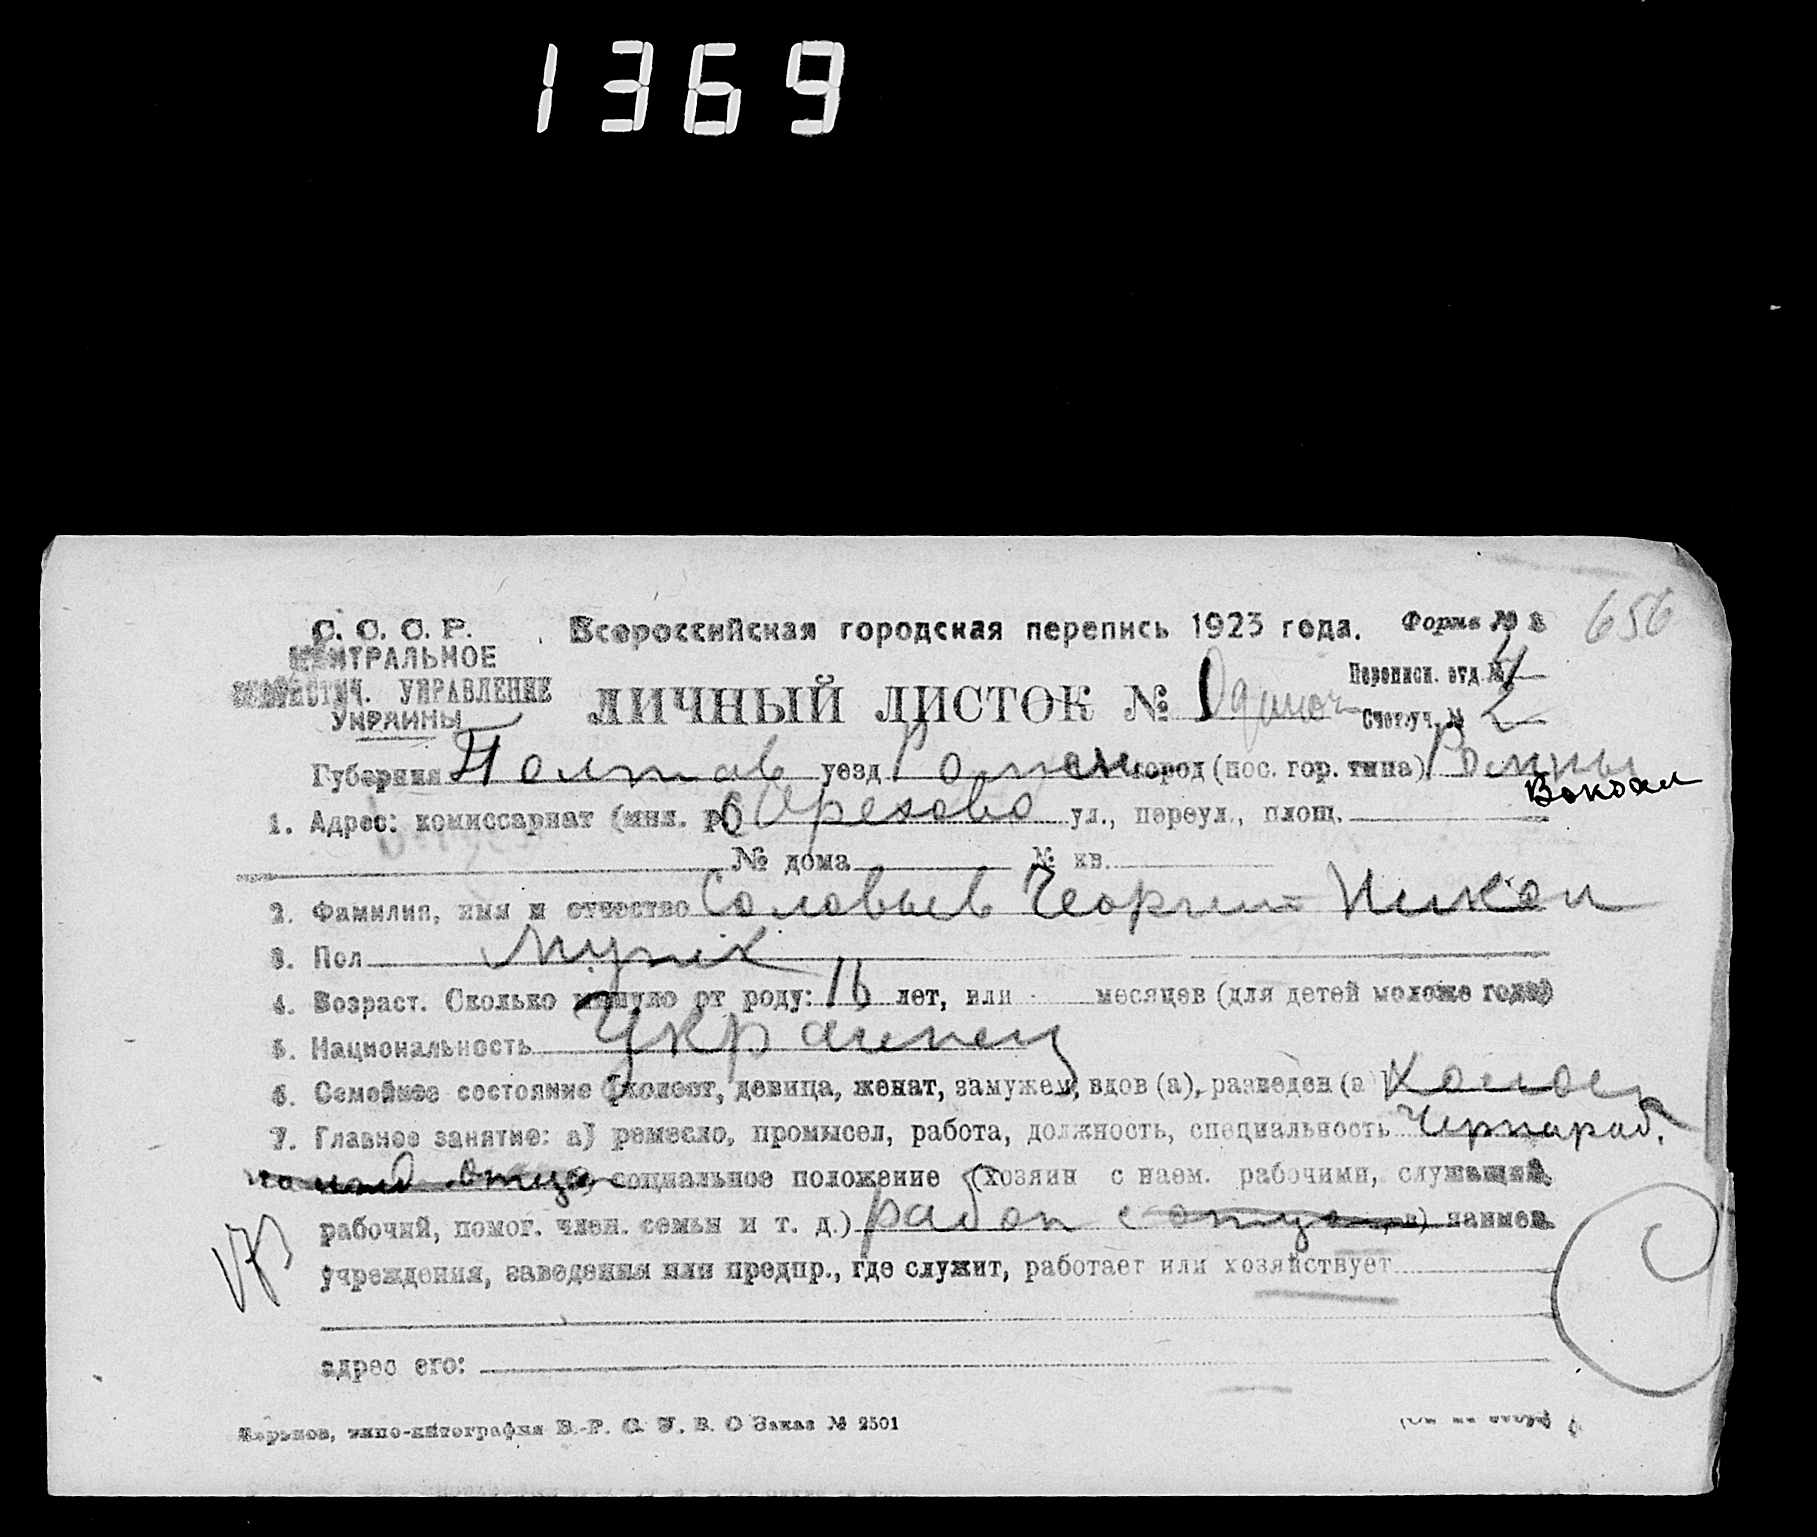 1369
656
С. С. С. Р. Всероссийская городская перепись 1923 года. Форма № 2
ЦЕНТРАЛЬНОЕ
СТАТИСТИЧ. УПРАВЛЕНИЕ
УКРАИНЫ
ЛИЧНЫЙ ЛИСТОК № 1 Одиноч
Переписн. отд. № 4
Счетуч. № 2
Губерния Полтав уезд Ромен город (пос. гор. типа) Ромны
Вокзал
1. Адрес: комиссариат (мил. р) ул., переул., площ.
№ дома № кв.
2. Фамилия, имя и отчество Соловьев Георгий Никол
3. Пол Мужск
4. Возраст. Сколько минуло от роду: 16 лет, или месяцев (для детей моложе года)
5. Национальность Украинец
6. Семейное состояние (холост, девица, женат, замужем, вдов (а), разведен (а) Холост
7. Главное занятие: а) ремесло, промысел, работа, должность, специальность Чернораб.
отца социальное положение (хозяин с наем. рабочими, служащий,
рабочий, помог. член. семьи и т. д.) рабоч отца в) наимен.
учреждения, заведения или предпр., где служит, работает или хозяйствует
адрес его:
Харьков, типо-литография В.-Р. С. У. В. О Заказ № 2501